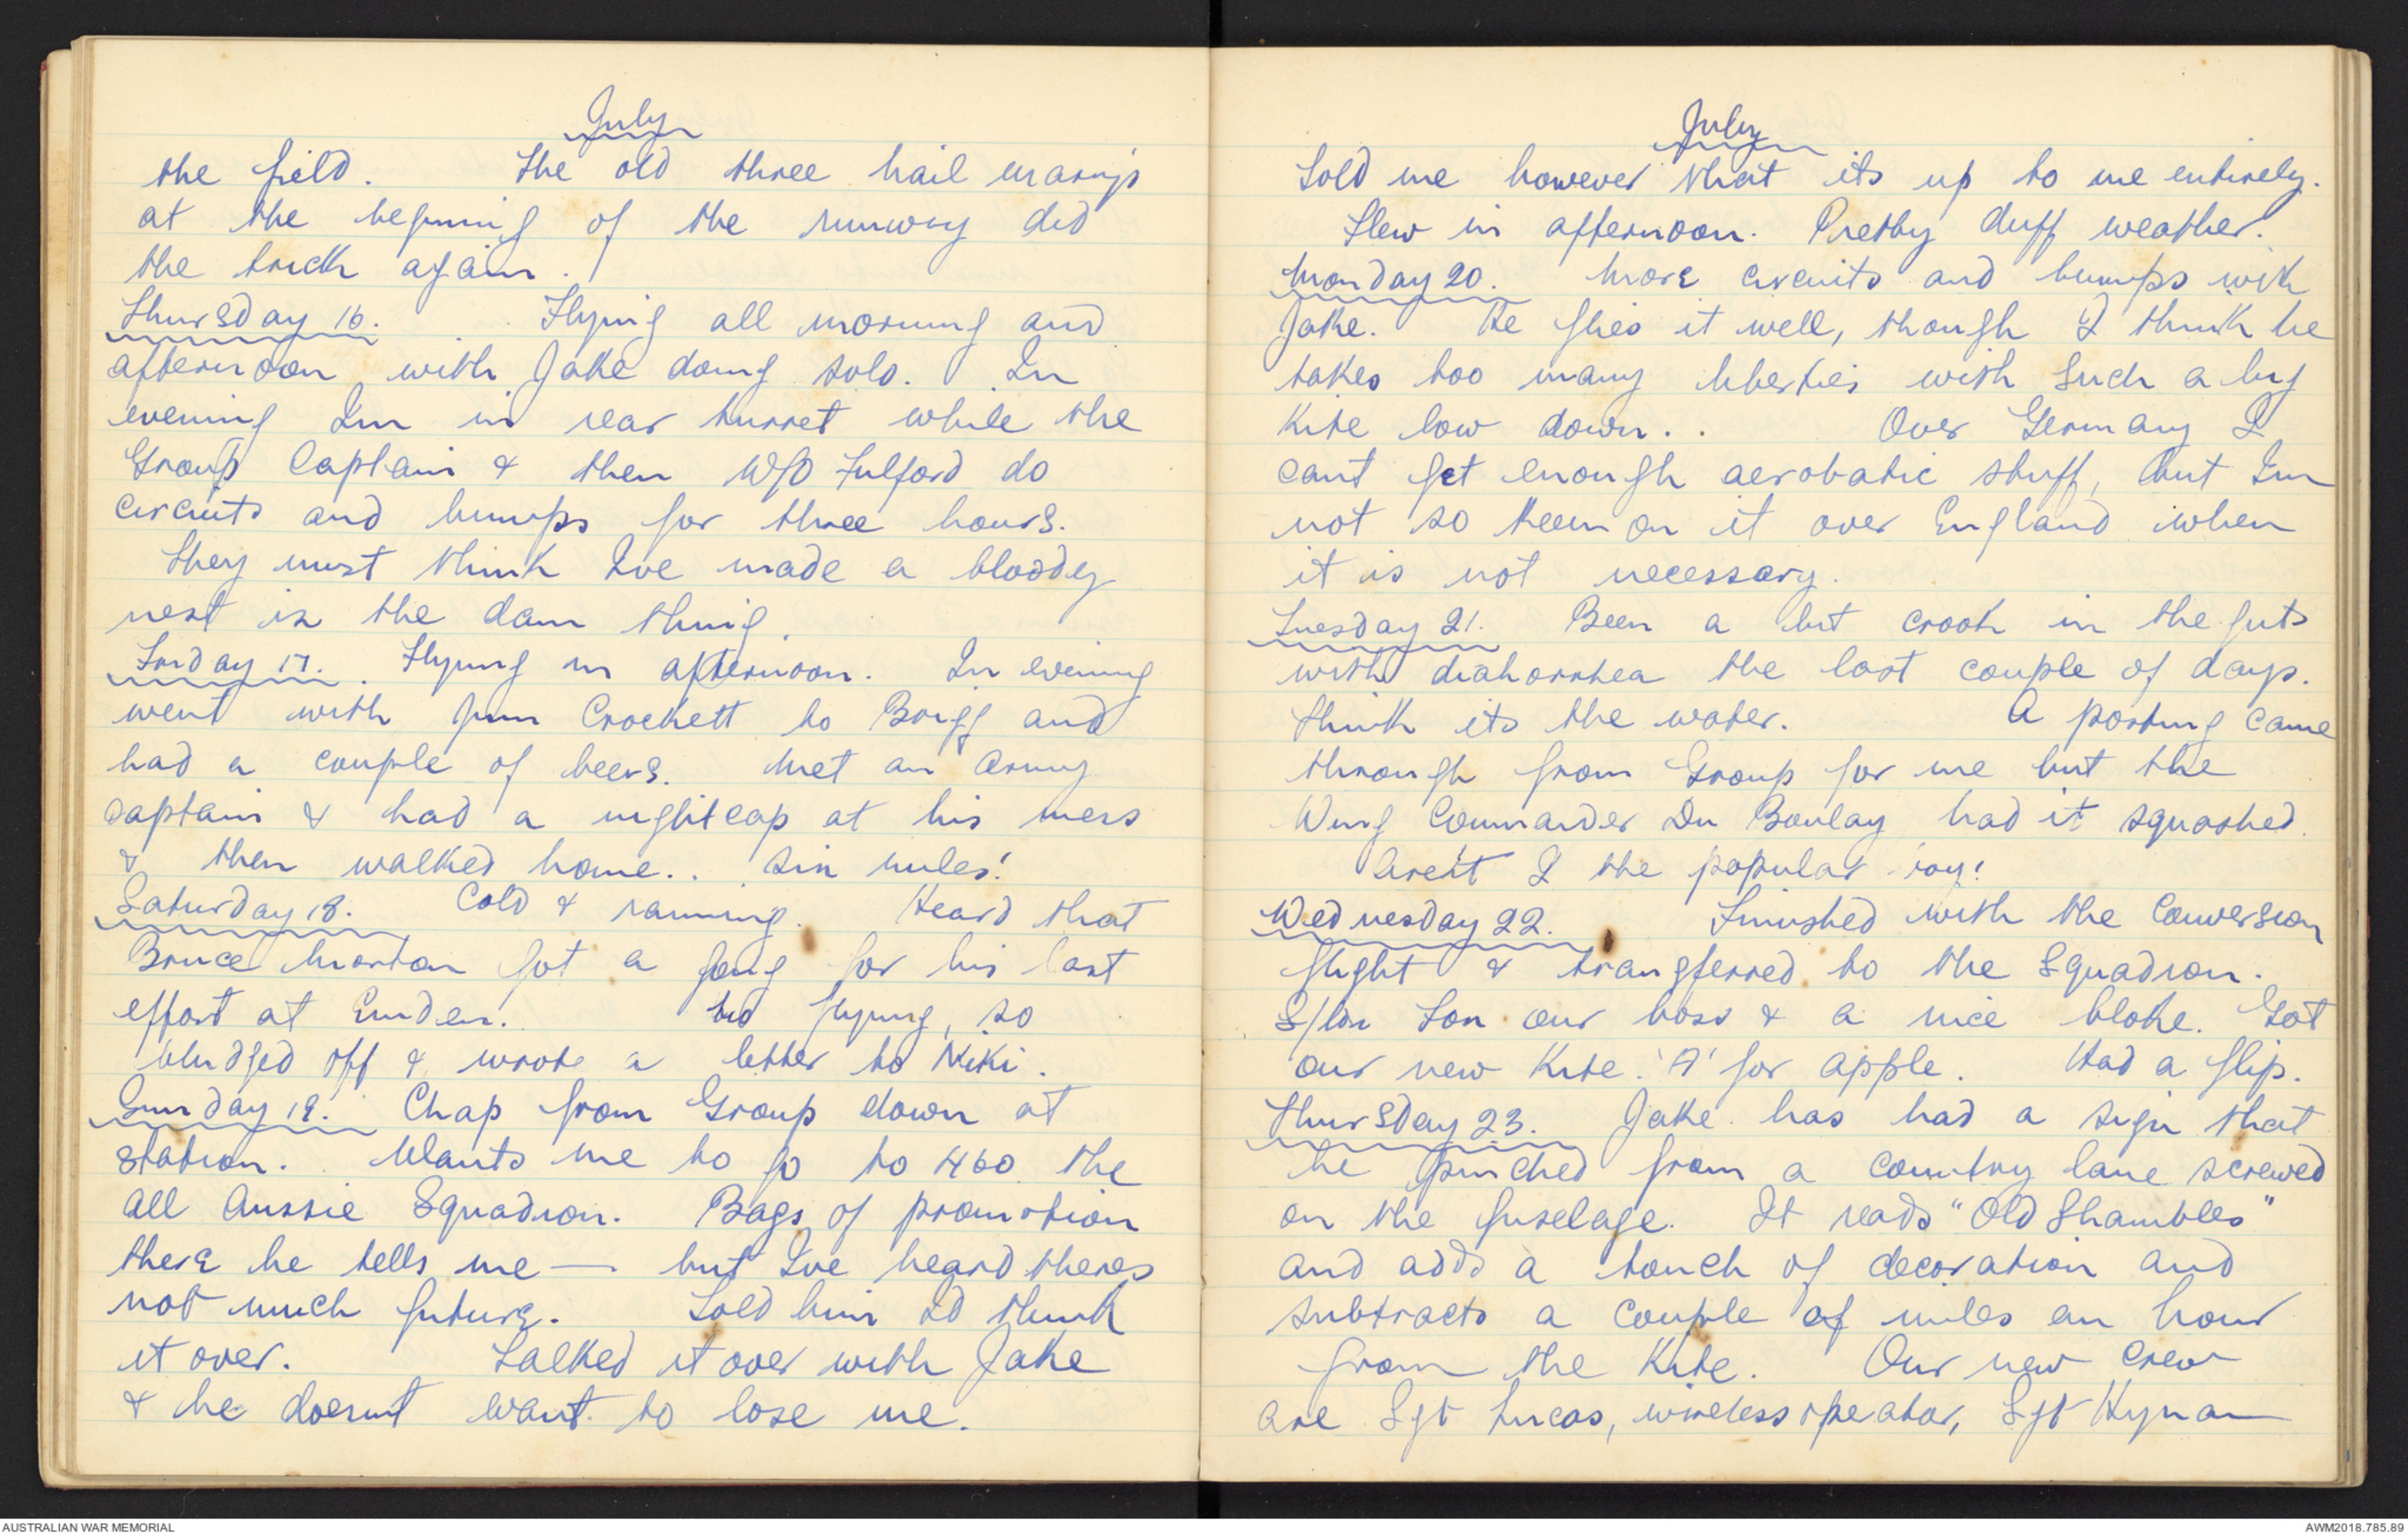 July
the field. The old three hail mary's
at the beginning of the runway did
the trick again.
Thursday 16. Flying all morning and
afternoon with Jake doing solo. In
evening Im in rear turret while the
Group Captain & then W/O Fulford do
circuits and bumps for three hours.
They must think Ive made a bloody
nest in the dam thing.
Friday 17. Flying in afternoon. In evening
went with Jim Crockett to Brigg and
had a couple of beers. Met an Army
captain & had a nightcap at his mess
& then walked home.. six miles!
Saturday 18. Cold & raining. Heard that
Bruce Morton got a gong for his last
effort at Emden. No flying, so
bludged off & wrote a letter to Niki.
Sunday 19. Chap from Group down at
station. Wants me to go to 460 the
all Aussie Squadron. Bags of promotion
there he tells me — but Ive heard theres
not much future. Told him Id think
it over. Talked it over with Jake
& he doesnt want to lose me.
July
Told me however that its up to me entirely.
Flew in afternoon. Pretty duff weather.
Monday 20. More circuits and bumps with
Jake. He flies it well, though I think he
takes too many liberties with such a big
Kite low down.. Over Germany I
cant get enough aerobatic stuff, but Im
not so keen on it over England when
it is not necessary.
Tuesday 21. Been a bit crook in the guts
with diahorrhea the last couple of days.
Think its the water. A posting came
through from Group for me but the
Wing Commander Du Boulay had it squashed.
Aren't I the popular boy!
Wednesday 22. Finished with the Conversion
flight & transferred to the Squadron.
S/Ldr Fox our boss & a nice bloke. Got
our new Kite. 'A' for apple. Had a flip.
Thursday 23. Jake has had a sign that
he pinched from a country lane screwed
on the fuselage. It reads "Old Shambles"
and adds a touch of decoration and
subtracts a couple of miles an hour
from the Kite. Our new crew
are Sgt Lucas, wireless opeator, Sgt Hynam
AUSTRALIAN WAR MEMORIAL
AWM2018.785.89